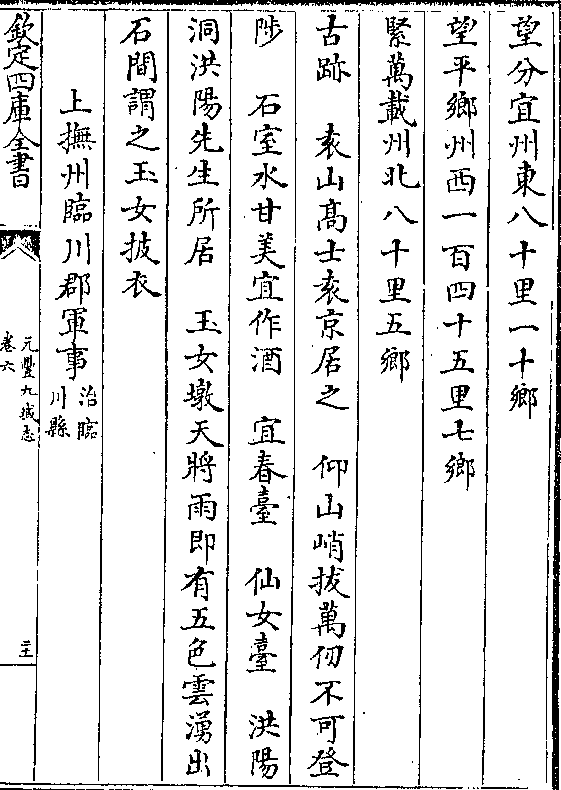 望分宜州東八十里一十鄉
望平鄉州西一百四十五里七鄉
緊萬載州北八十里五鄉
古跡　袁山髙士袁京居之　仰山峭拔萬仞不可登
陟　石室水甘美宜作酒　宜春臺　仙女臺　洪陽
洞洪陽先生所居　玉女墩天將雨即有五色雲湧出
石間謂之玉女披衣
上撫州臨川郡軍事治臨川縣
欽定四庫全書
元豐九域志
卷六